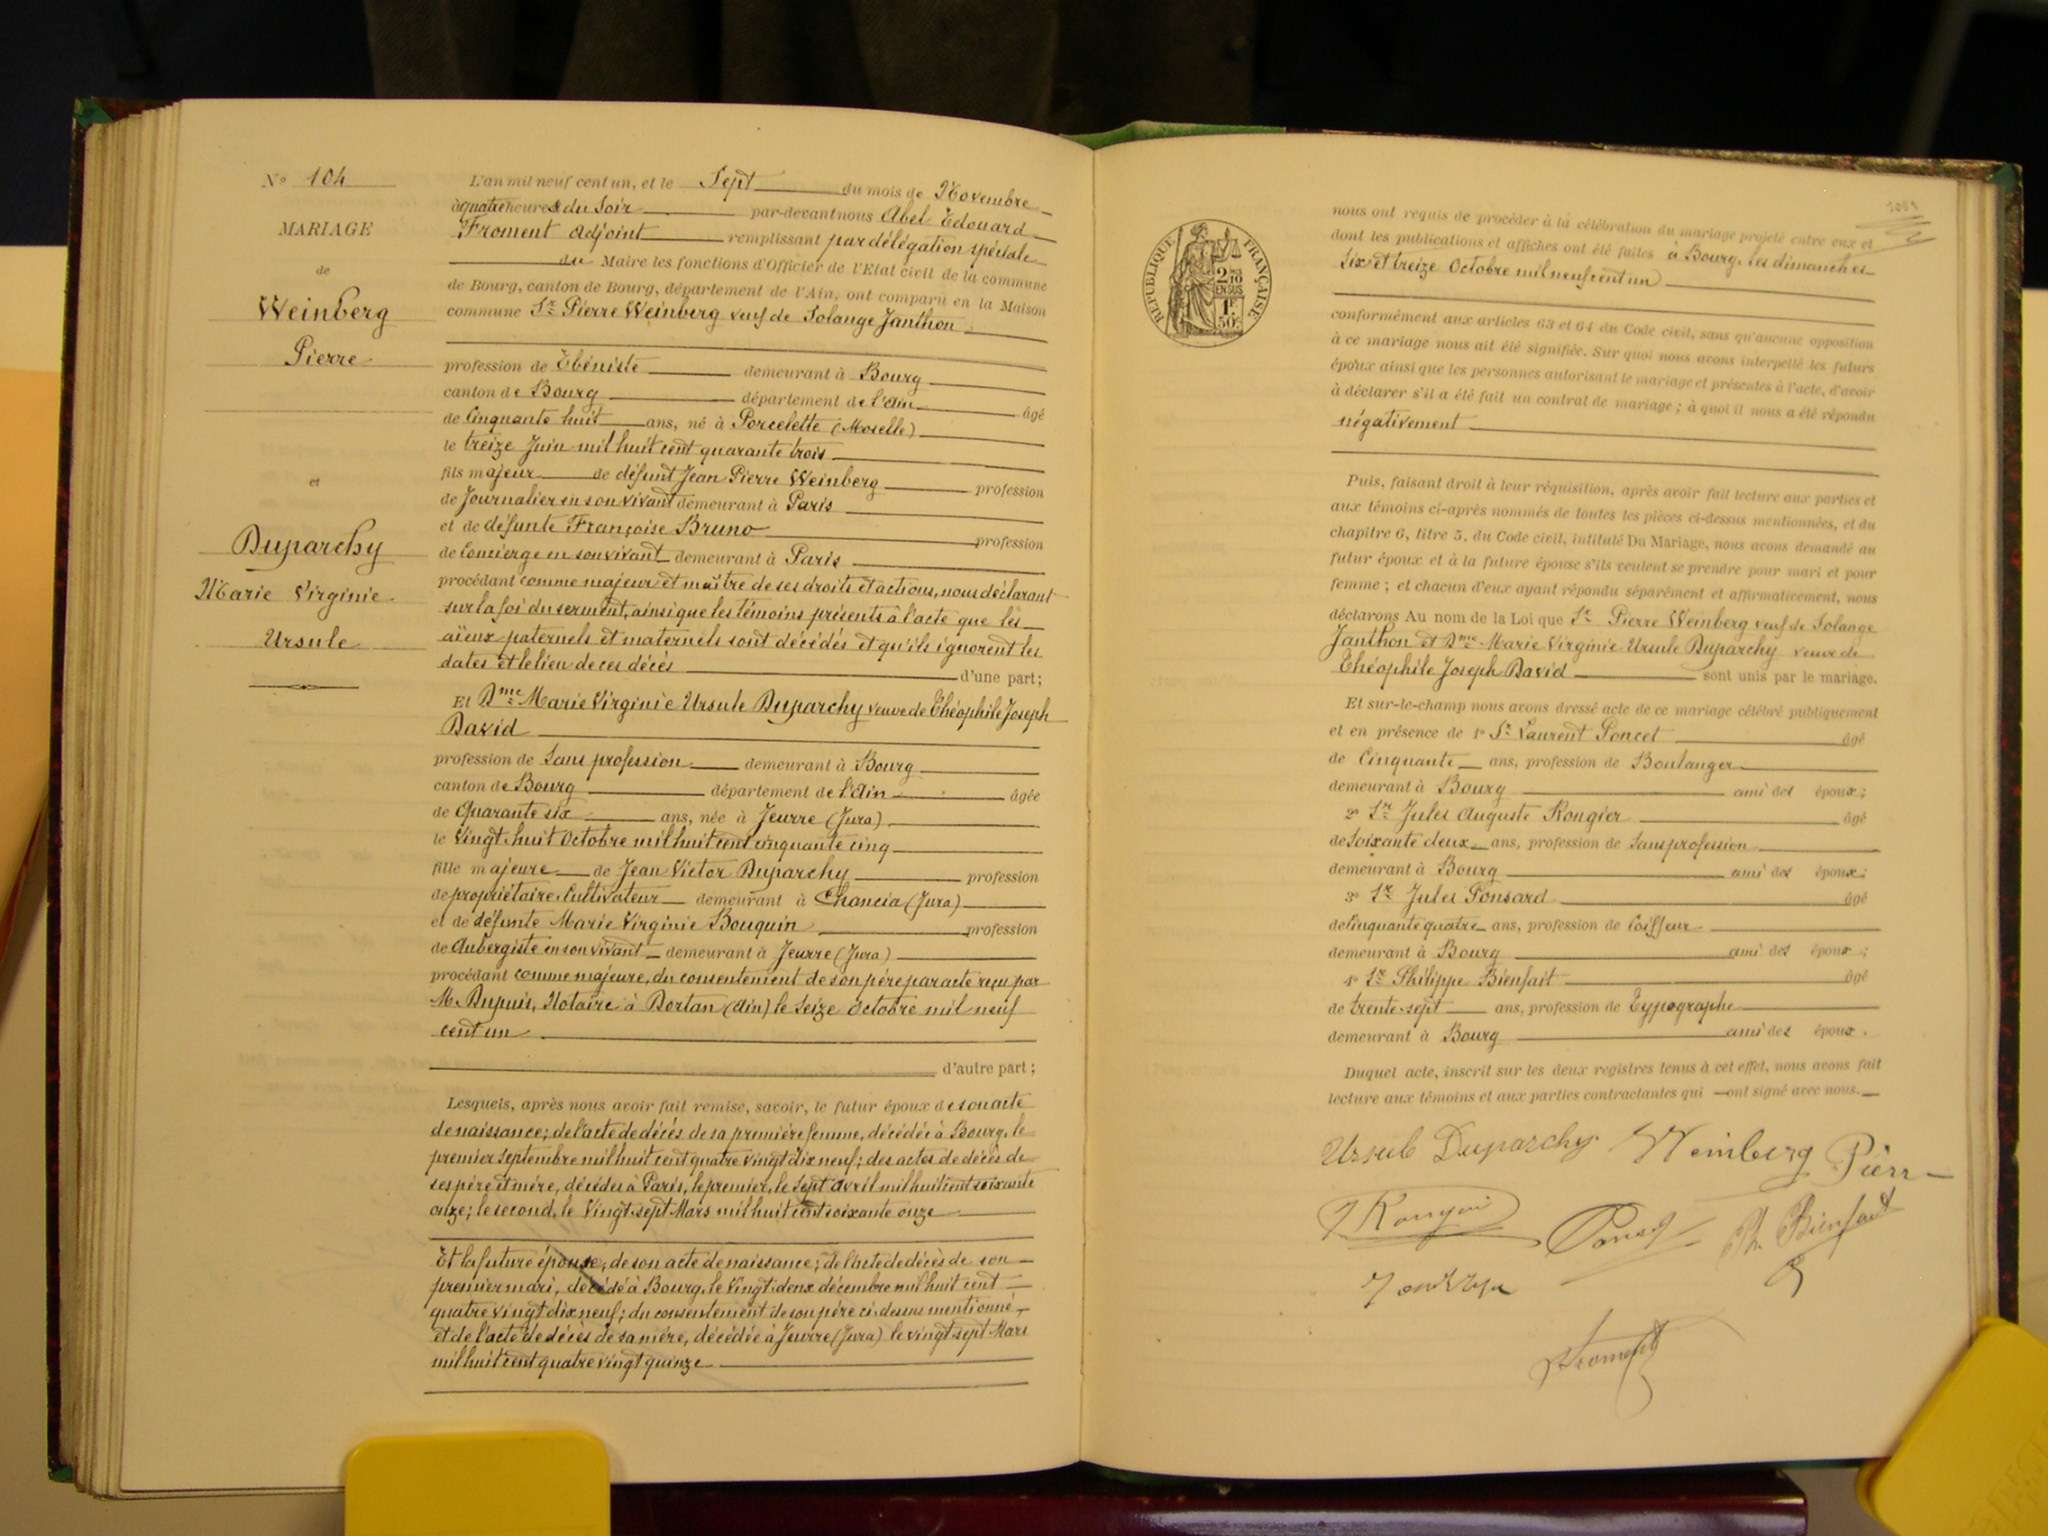 N° 104
MARIAGE
de
Weinberg
Pierre
et
Duparchy
Marie Virginie
Ursule
L'an mil neuf cent un, et le Sept du mois de Novembre
à quatre heures du Soir par-devant nous Abel Edouard
Froment Adjoint remplissant par délégation spéciale
du Maire les fonctions d'Officier de l'Etat civil de la commune
de Bourg, canton de Bourg, département de l'Ain, ont comparu en la Maison
commune Sr Pierre Weinberg veuf de Solange Janthon
profession de Ebéniste demeurant à Bourg
canton de Bourg département de l'Ain âgé
de Cinquante huit ans, né à Porcelette (Moselle)
le treize Juin mil huit cent quarante trois
fils majeur de défunt Jean Pierre Weinberg profession
de Journalier en son vivant demeurant à Paris
et de défunte Françoise Bruno profession
de Concierge en son vivant demeurant à Paris
procédant comme majeur et maître de ses droits et actions, nous déclarant
sur la foi du serment, ainsi que les témoins présents à l'acte que les
aïeux paternels et maternels sont décédés et qu'ils ignorent les
dates et le lieu de ces décès d'une part;
Et Dme Marie Virginie Ursule Duparchy veuve de Théophile Joseph
David
profession de Sans profession demeurant à Bourg
canton de Bourg département de l'Ain âgée
de Quarante six ans, née à Jeurre (Jura)
le Vingt-huit Octobre mil huit cent cinquante cinq
fille majeure de Jean Victor Duparchy profession
de propriétaire Cultivateur demeurant à Chancia (Jura)
et de défunte Marie Virginie Bouquin profession
de Aubergiste en son vivant demeurant à Jeurre (Jura)
procédant comme majeure, du consentement de son père par acte reçu par
M. Dupuis, Notaire à Dortan (Ain) le Seize Octobre mil neuf
cent un
d'autre part;
Lesquels, après nous avoir fait remise, savoir, le futur époux de son acte
de naissance; de l'acte de décès de sa première femme, décédée à Bourg, le
premier Septembre mil huit cent quatre vingt dix neuf; des actes de décès de
ses père et mère, décédés à Paris, le premier, le Sept Avril mil huit cent soixante
onze; le second, le Vingt-sept Mars mil huit cent soixante onze
Et la future épouse, de son acte de naissance; de l'acte de décès de son
premier mari, décédé à Bourg, le Vingt-deux décembre mil huit cent
quatre vingt dix neuf; du consentement de son père ci-dessus mentionné,
et de l'acte de décès de sa mère, décédée à Jeurre (Jura) le vingt-sept Mars
mil huit cent quatre vingt quinze
RÉPUBLIQUE FRANÇAISE
2/10
EN SUS
1F
50C
nous ont requis de procéder à la célébration du mariage projeté entre eux et
dont les publications et affiches ont été faites à Bourg, les dimanches
Six et treize Octobre mil neuf cent un
conformément aux articles 63 et 64 du Code civil, sans qu'aucune opposition
à ce mariage nous ait été signifiée. Sur quoi nous avons interpellé les futurs
époux ainsi que les personnes autorisant le mariage et présentes à l'acte, d'avoir
à déclarer s'il a été fait un contrat de mariage; à quoi il nous a été répondu
négativement
Puis, faisant droit à leur réquisition, après avoir fait lecture aux parties et
aux témoins ci-après nommés de toutes les pièces ci-dessus mentionnées, et du
chapitre 6, titre 5, du Code civil, intitulé Du Mariage, nous avons demandé au
futur époux et à la future épouse s'ils veulent se prendre pour mari et pour
femme; et chacun d'eux ayant répondu séparément et affirmativement, nous
déclarons Au nom de la Loi que Sr Pierre Weinberg veuf de Solange
Janthon et Dme Marie Virginie Ursule Duparchy veuve de
Théophile Joseph David sont unis par le mariage.
Et sur-le-champ nous avons dressé acte de ce mariage célébré publiquement
et en présence de 1° Sr Laurent Poncet âgé
de Cinquante ans, profession de Boulanger
demeurant à Bourg ami des époux;
2° Sr Jules Auguste Rongier âgé
de Soixante deux ans, profession de Sans profession
demeurant à Bourg ami des époux;
3° Sr Jules Ponsard âgé
de Cinquante quatre ans, profession de Coiffeur
demeurant à Bourg ami des époux;
4° Sr Philippe Bienfait âgé
de trente-sept ans, profession de Typographe
demeurant à Bourg ami des époux.
Duquel acte, inscrit sur les deux registres tenus à cet effet, nous avons fait
lecture aux témoins et aux parties contractantes qui ont signé avec nous.
Ursule Duparchy Weinberg Pierr
Ph. Bienfait